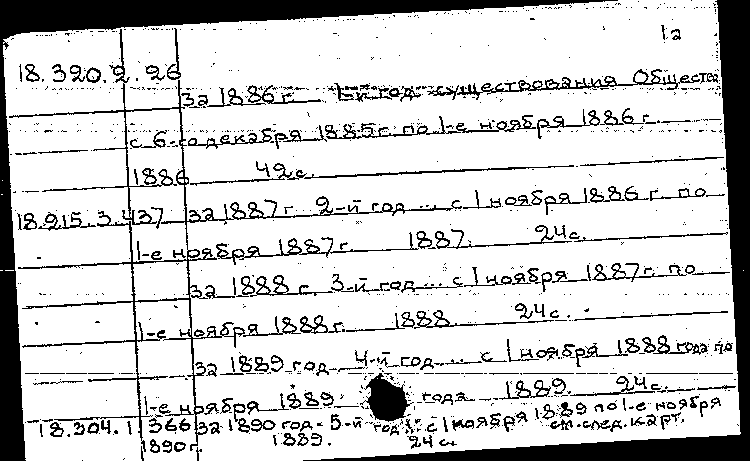 1а
18.320.2.26
за 1886 г. 1-й год существования Общества
с 6-го декабря 1885 г. по 1-е ноября 1886 г.
1886 42 с.
18.215.3.437 за 1887 г. 2-й год ... с 1 ноября 1886 г. по
1-е ноября 1887 г. 1887. 24 с.
за 1888 г. 3-й год ... с 1 ноября 1887 г. по
1-е ноября 1888 г. 1888. 24 с.
за 1889 год 4-й год ... с 1 ноября 1888 года по
1-е ноября 1889 года 1889. 24 с.
18.304.1.366 за 1890 год - 5-й год с 1 ноября 1889 по 1-е ноября
1890 г. 1889. 24 с. см. след. карт.